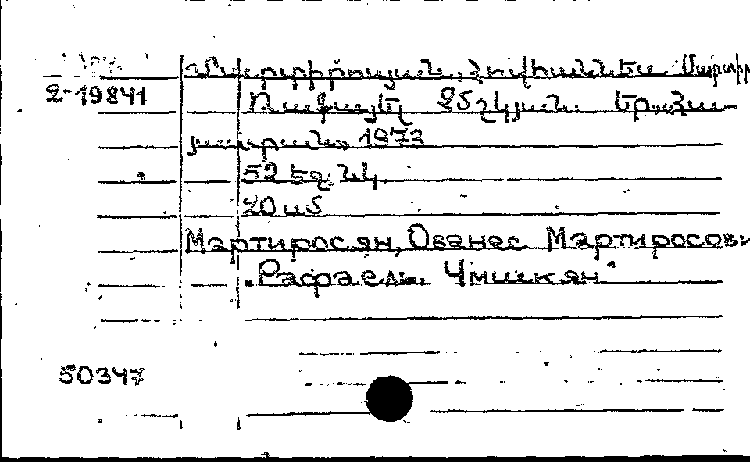 Մարտիրոսյան, Հովհաննես Մարտիր
2-19841
Ռաֆայել Չմշկյան. Եր., Հա-
յաստան, 1973
52 եջ նկ.
20 սմ
Мартиросян, Ованес Мартиросови
"Рафаель Чмшкян"
50347